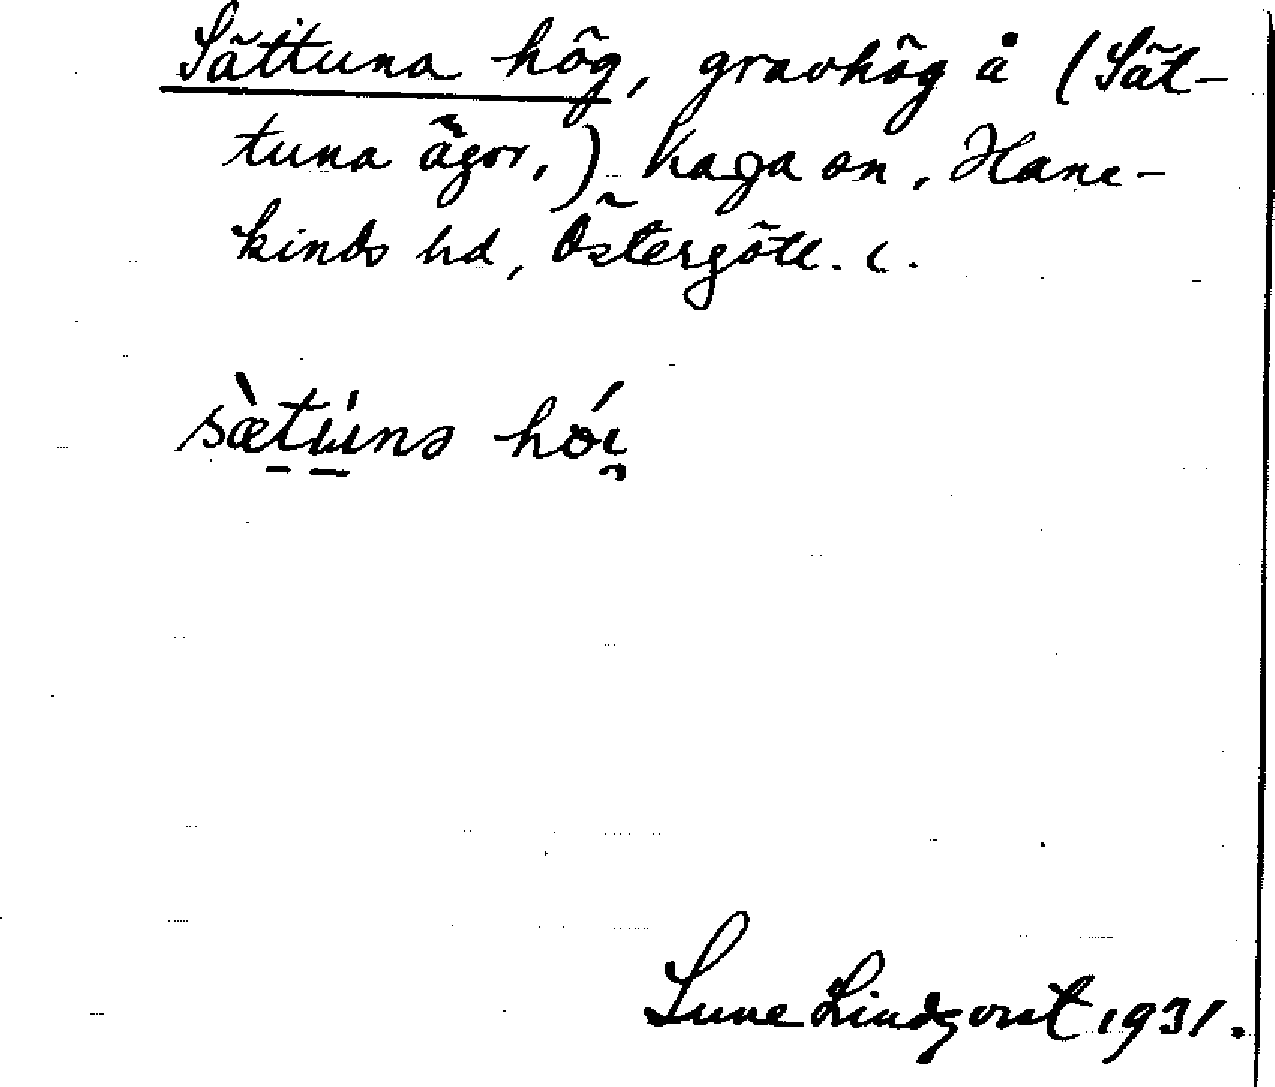 Sättuna hög, gravhög å (Sät-
tuna ägor,) Kaga sn, Hane-
kinds hd, Östergötl. l.
sæ̀tu̇nə hóı̯
Sune Lindqvist 1931.